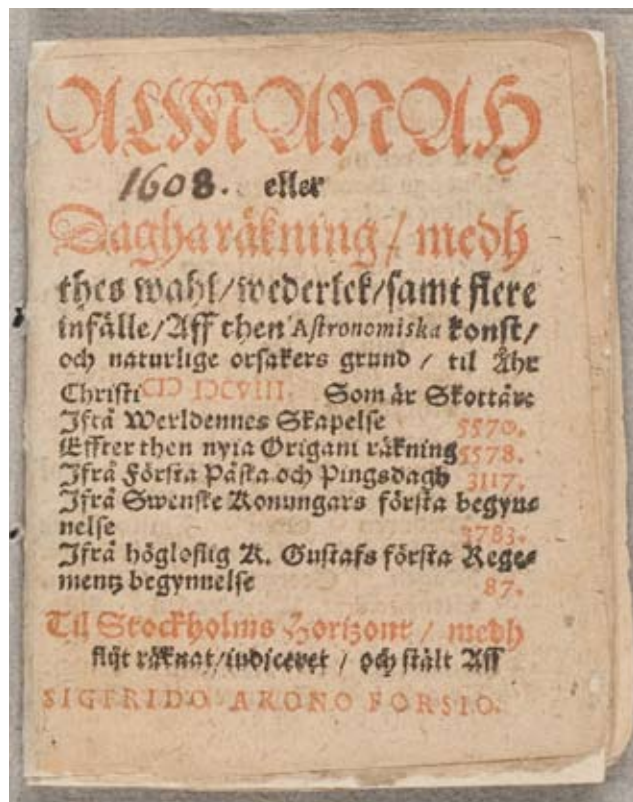 ALMANAH
1608. eller
Dagharäkning / medh
thes wahl/wederlek/samt flere
infälle/Aff then Astronomiska konst/
och naturlige orsakers grund / til Åhr
Christi CIƆ IƆCVIII. Som är Skottåre
Ifrå Werldennes Skapelse 5570.
Effter then nyia Origani räkning 5578.
Ifrå Första Påska och Pingsdagh 3117.
Ifrå Swenske Konungars första begyn⸗
nelse 3783.
Ifrå högloflig K. Gustafs första Rege⸗
mentz begynnelse 87.
Til Stockholms Horizont / medh
flijt räknat/indiceret / och stält Aff
SIGFRIDO ARONO FORSIO.